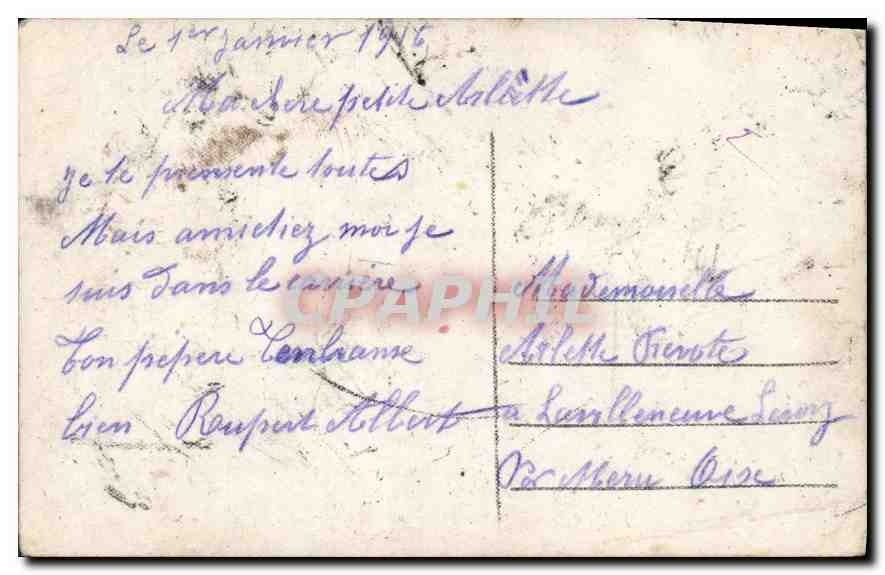 Le 1er Janvier 1916
Ma chere petite Arlette
Je te presente toutes
Mais amitiez moi je
suis dans le
Ton pepere t'enbrasse
bien Rupert Albert
Mademoiselle
Arlette Prevote
a Lavilleneuve
Par Meru Oise
CPAPHIL